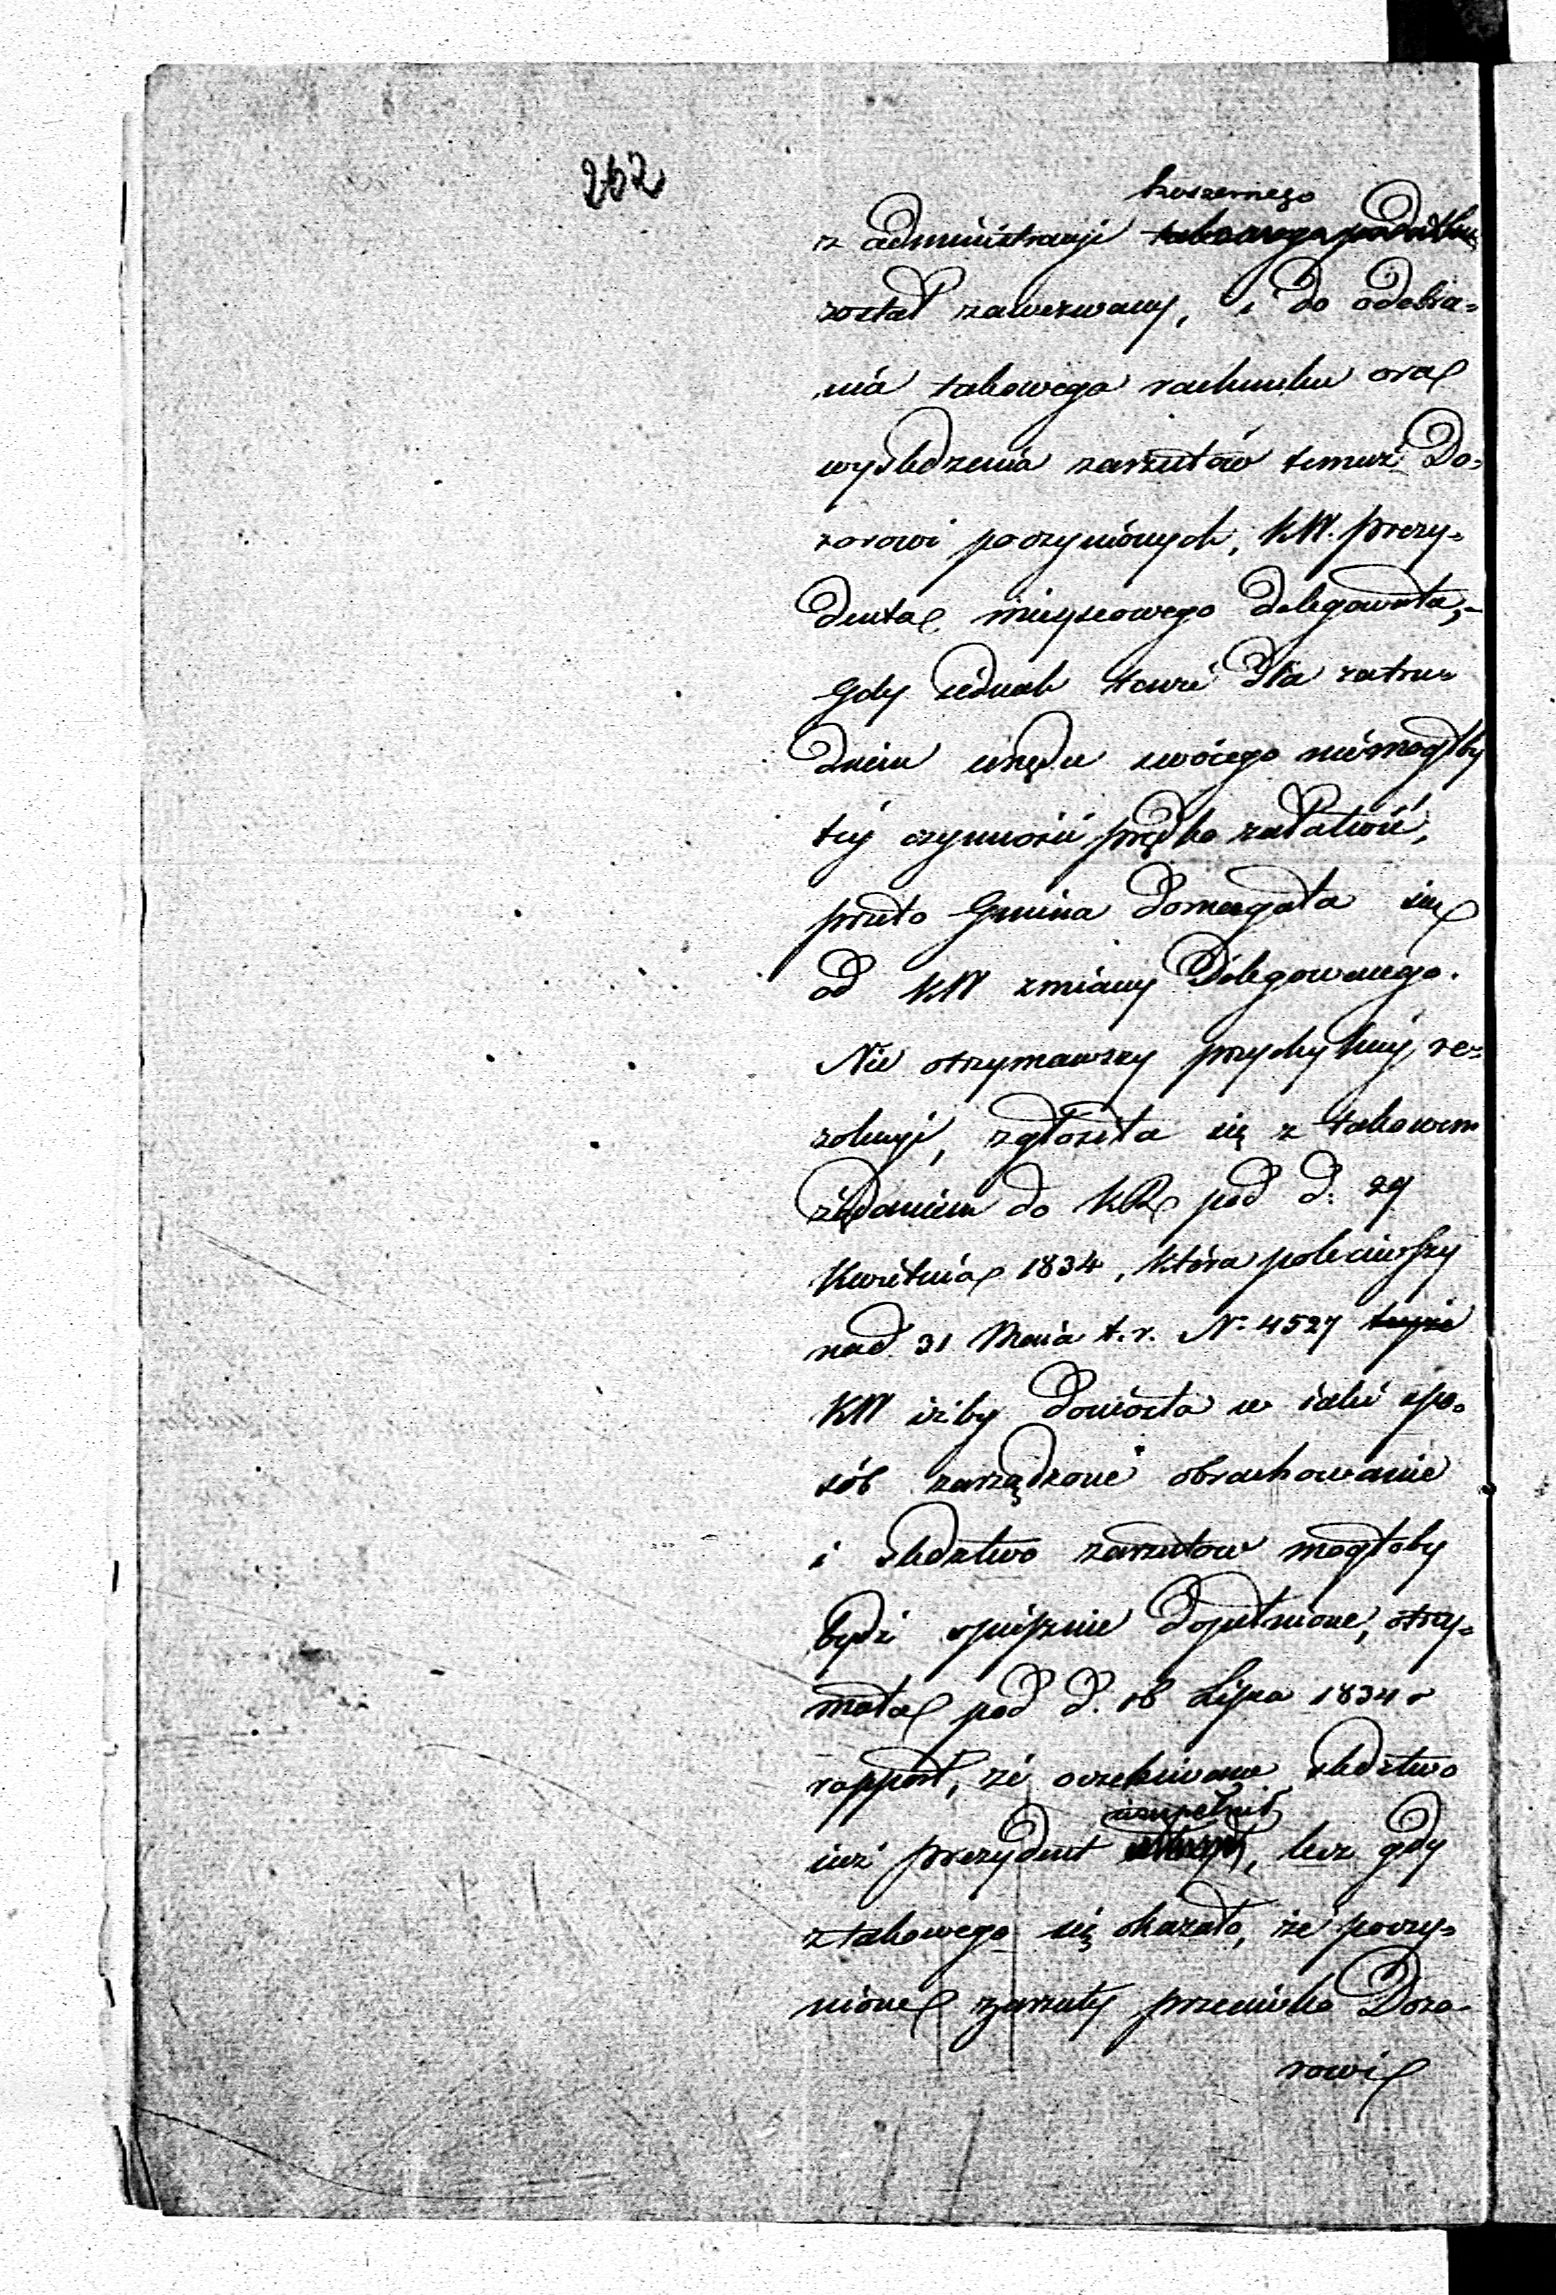 262
koszernego
z administracyi takowego podatku
został zawezwany, i do odebra=
nia takowego rachunku oraz
wyśledzenia zarzutów temuż Do=
zorowi poczynionych, KW. prezy=
denta mieyscowego delegowała,-
Gdy jednak tenże dla zatru=
dnień urzędu swoiego niemogłby
téy czynności prędko załatwić,
przeto Gmina domagała się
od KW zmiany Delegowanego.
Nie otrzymawszy przychylnéy re=
zolucyi, zgłosiła się z takowem
żądaniem do KR pod d. 29
Kwietnia 1834, która poleciwszy
nad 31 Maia t. r. N. 4527 teyże
KW iżby doniosła w iaki spo=
sób zarządzone obrachowanie
i śledztwo zarzutów mogłoby
bydź spiesznie dopełnione, otrzy=
mała pod d. 16 Lipca 1834 r
rapport, że oczekiwane śledztwo
uzupełnił
iuż prezydent, lecz gdy
z takowego się okazało, że poczy=
nione zarzuty przeciwko Dozo=
rowi